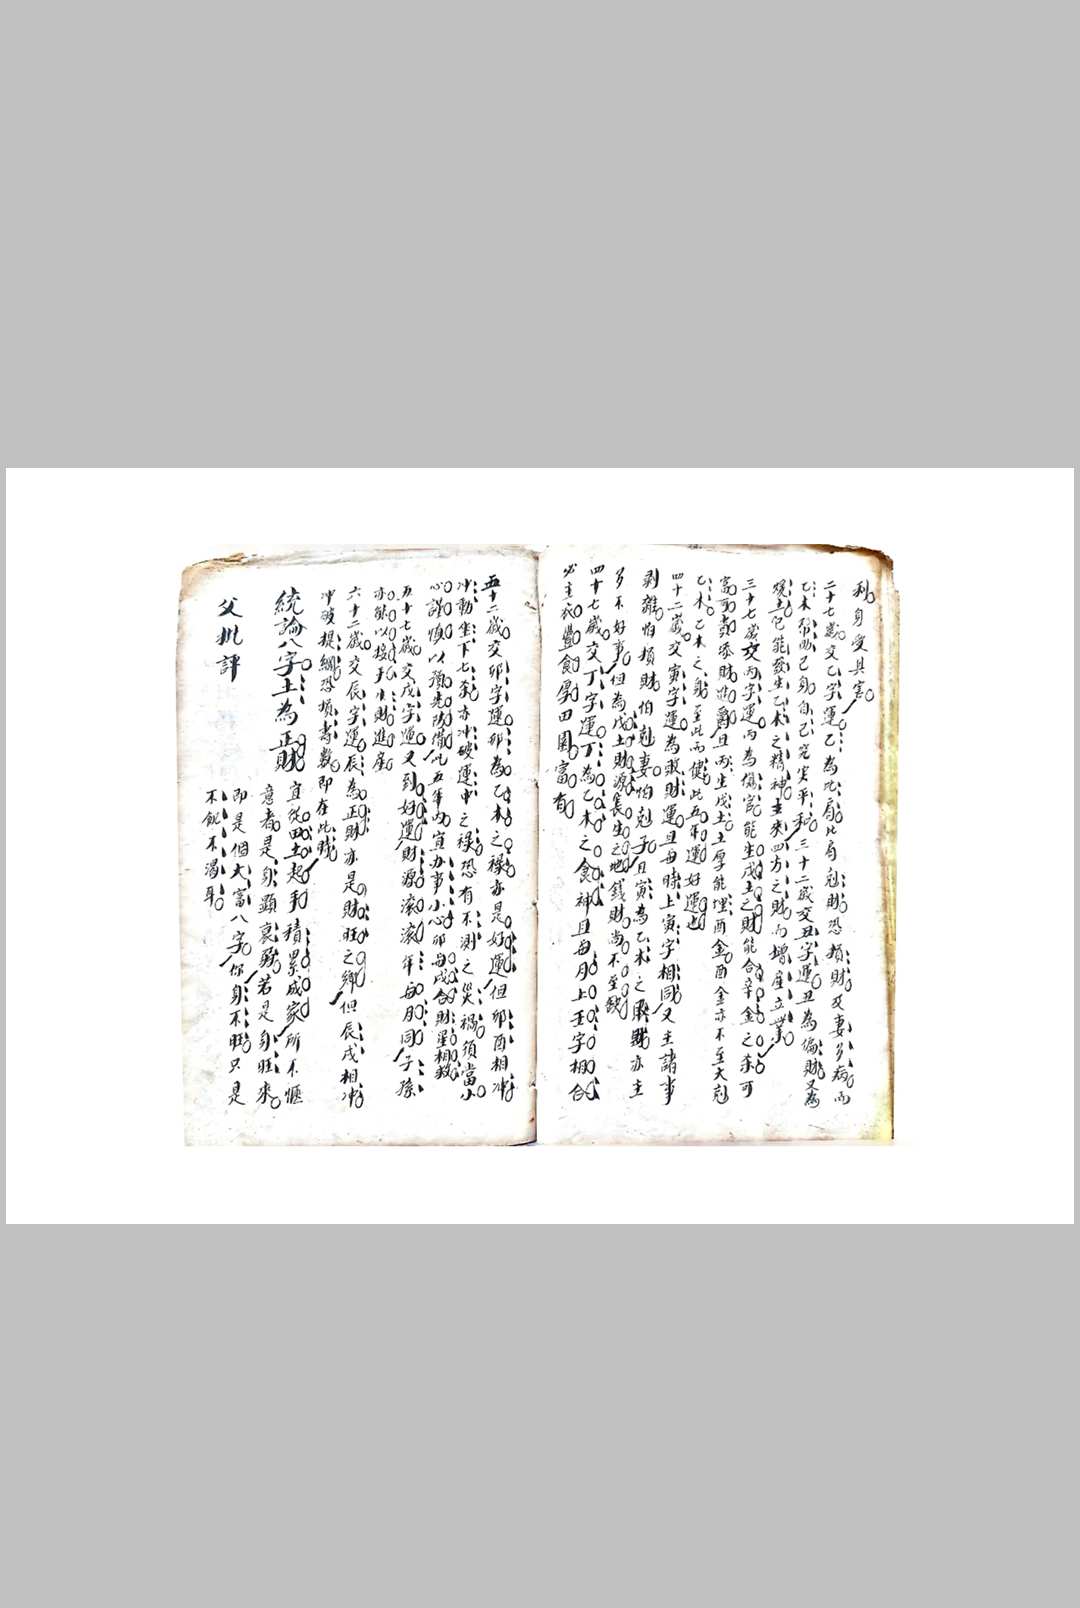 利身受其害
二十七歲交乙字運乙為比局比局剋財恐損財及妻多病而
乙木帮助己身自己完实平和三十二歲交丑字運丑為偏財又為
土它能發生乙木之精神主來四方之財而增產立業
三十七歲交丙字運丙為傷官能生戊土之財能合辛金之杀可
富可貴添財進爵且丙生戊土土厚能埋酉金酉金亦不至大剋
乙木乙木之身至此而健此五年運好運也
四十二歲交寅字運為敗財運且每時上寅字相同又主諸事
剥雜怕損財怕剋妻怕剋子且寅為乙木之敗財亦主
多不好事但為戊土財源長生之地錢財尚不至缺
四十七歲交丁字運丁為乙木之食神且每月上壬字相合
必主衣豐食厚田園富有
五十二歲交卯字運卯為乙木之祿亦是好運但卯酉相冲
冲動坐下七杀亦冲破運中之祿恐有不測之災禍須當小
心謹慎以預先防備此五年內宜办事小心卯每戌合財星相救
五十七歲交戊字運又到好運財源滾滾年每月同子孫
亦能以接手生財進產
六十二歲交辰字運辰為正財亦是財旺之鄉但辰戌相冲
冲破提綱恐損壽數即在此賤
統論八字土為正財宜從田土起手積累成家所不愜
意者是身顯衰弱若是身旺來
即是個大富八字你身不旺只是
不飢不渴耳
父批評